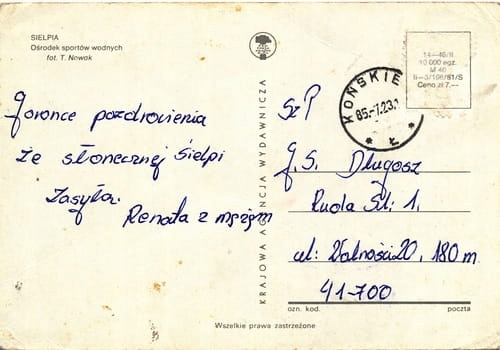 SIELPIA
Ośrodek sportów wodnych
fot. T. Nowak
Gorące pozdrowienia
ze słonecznej Sielpi
Zasyła
Renata z mężem
KRAJOWA AGENCJA WYDAWNICZA
14—46/II
10 000 egz.
II—3/196/81/S
Cena zł 7.—
KOŃSKIE
85.-7.23.
* Ł *
Sz P
G.S. Długosz
Ruda Śl. 1.
ul. Wolności 20, 180 m
41-700
ozn. kod. poczta
Wszelkie prawa zastrzeżone